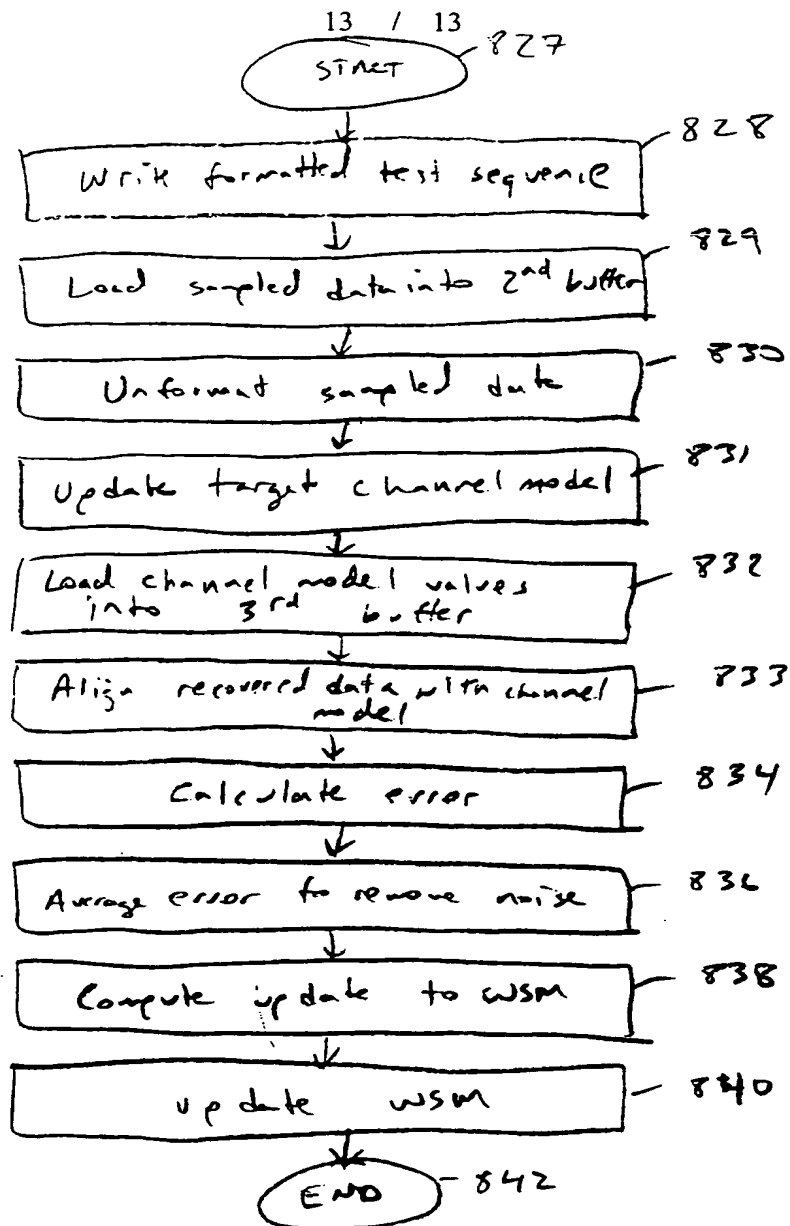 13 / 13
START 827
828
Write formatted test sequence
829
Load sampled data into 2nd buffer
830
Unformat sampled data
831
Update target channel model
832
Load channel model values
into 3rd buffer
833
Align recovered data with channel
model
834
Calculate error
836
Average error to remove noise
838
Compute update to WSM
840
update WSM
END 842